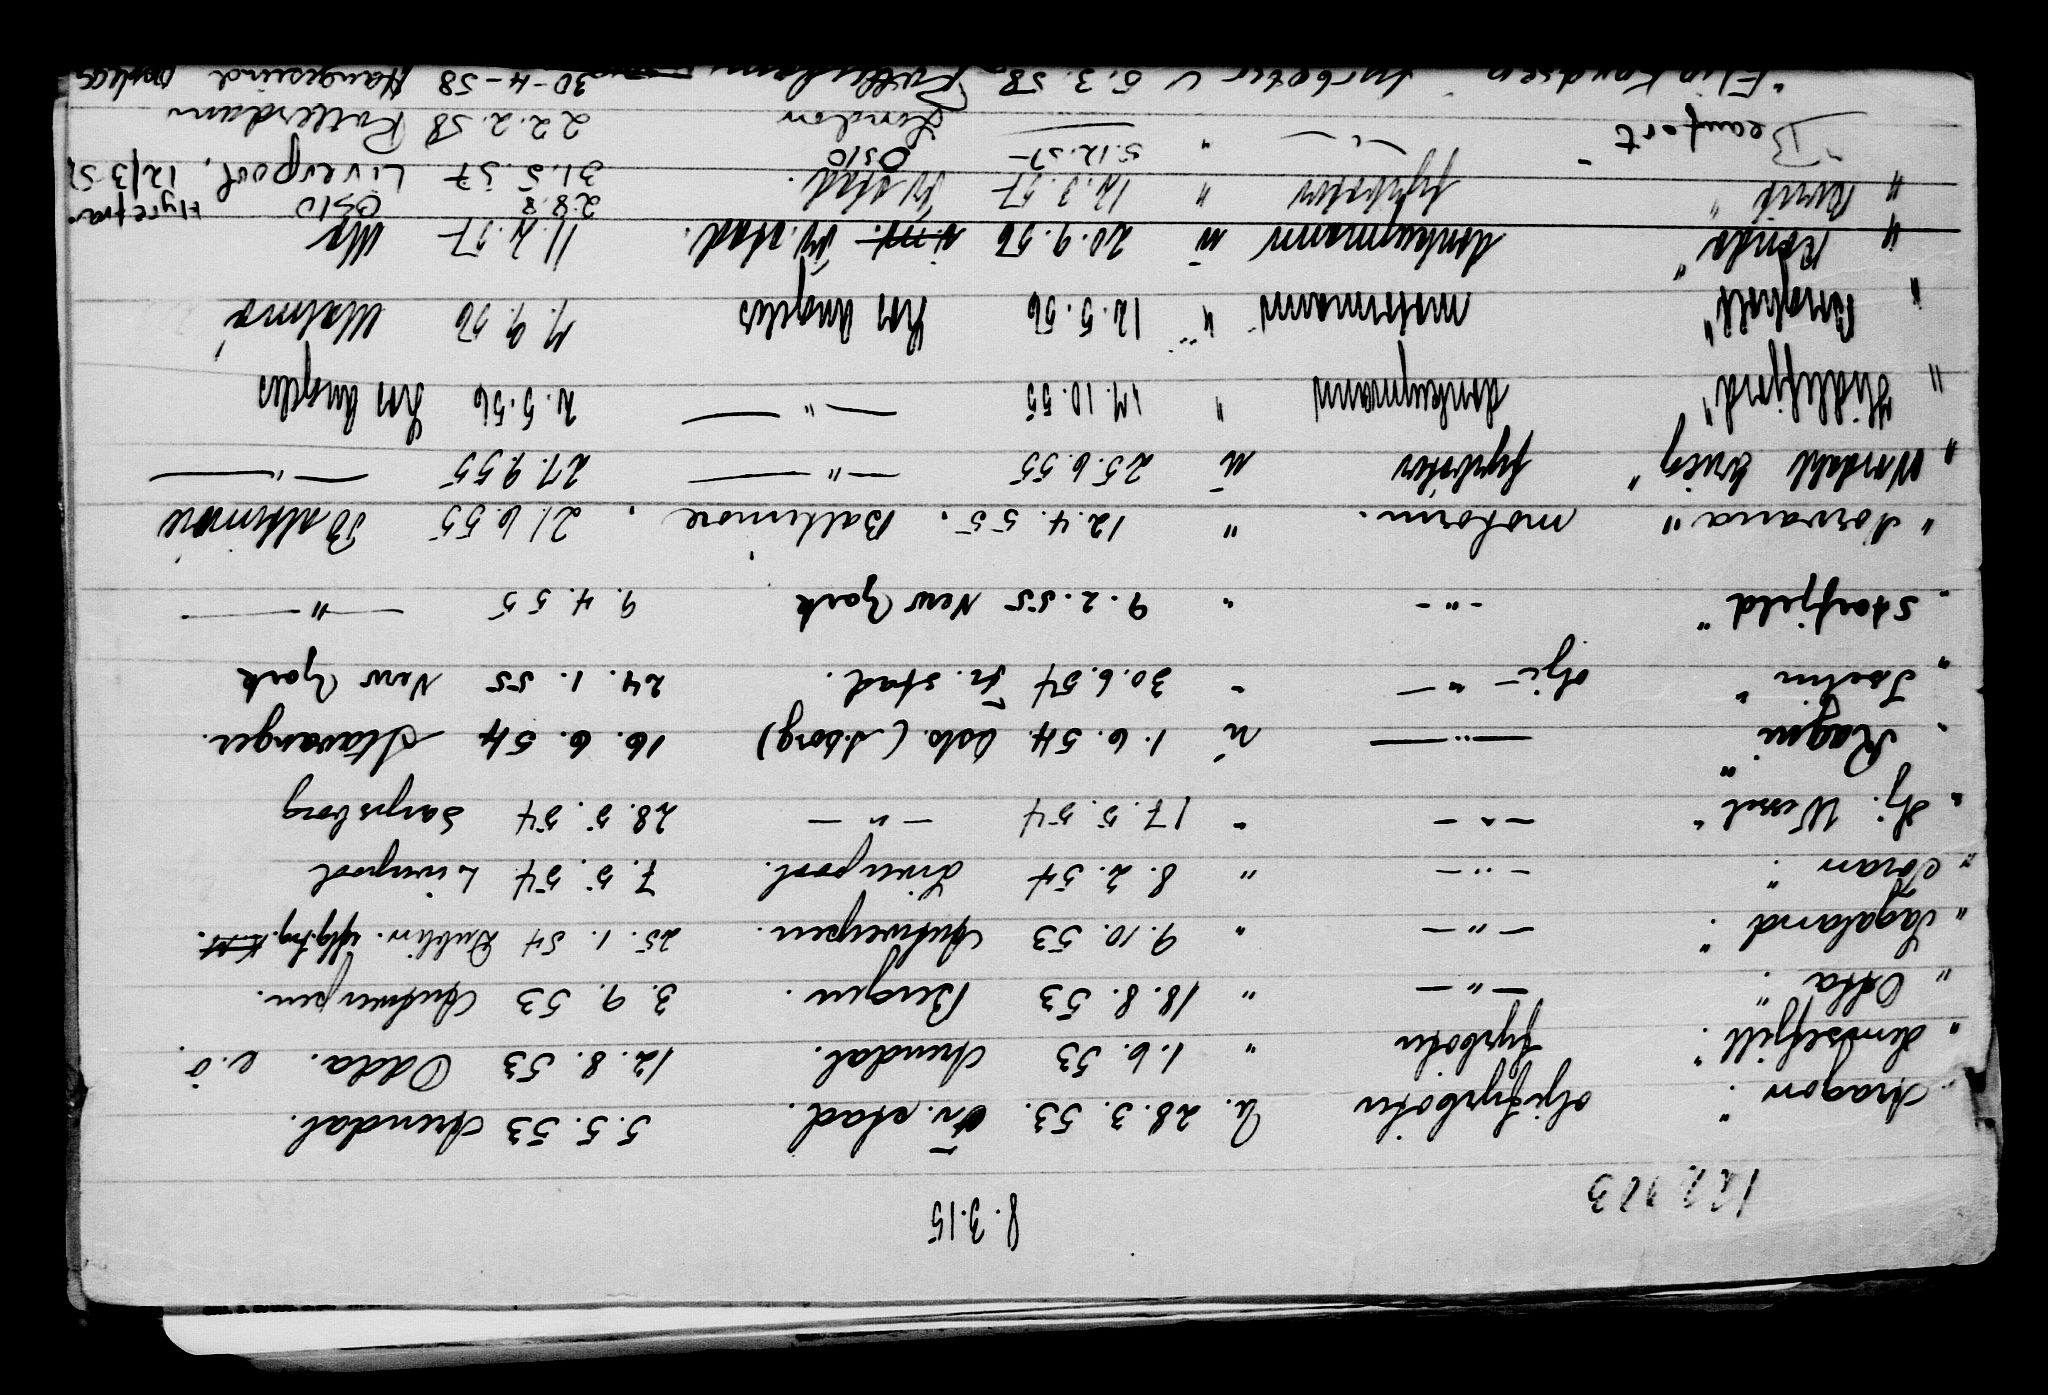 122323
8.3.15
"Aragon". oljefyrbøter U. 28.3.53. Fr.stad. 5.5.53 Arendal.
"Lundefjell". fyrbøter " 1.6.53 Arendal. 12.8.53 Odda. e.ø.
"Odda". — " — " 18.8.53 Bergen. 3.9.53 Antwerpen.
"Sagaland". — " — " 9.10.53 Antwerpen. 25.1.54 Dublin.
"Toran". — " — " 8.2.54 Liverpool. 7.5.54. Liverpool
"Hj. Wessel" — " — " 17.5.54 — " — 28.5.54 Sarpsborg
"Ragni". — " — U 1.6.54 Oslo. (S.borg) 16.6.54 Stavanger.
"Iselin" olje — " — " 30.6.54 Fr.stad. 24.1.55 New York
"Storfjeld" — " — " 9.2.55 New York 9.4.55 — " —
"Norvana" motorm. " 12.4.55. Baltimore. 21.6.55 Baltimore
"Nordahl Grieg" fyrbøter U 25.6.55 — " — 27.9.55 — " —
"Hidlefjord" donkeymann " 17.10.55 — " — 2.5.56 Los Angeles
" " motormann " 12.5.56 Los Angeles 7.9.56 Malmø
"Ronda" donkeymann U 20.9.56 Fr.stad. 11.2.57
" " fyrbøter " 12.3.57 Fr.stad. 31.5.57 Liverpool, 12/3 5
28.8 Oslo Hyre fra
5.12.57 Oslo
"Beaufort" — " — " London 22.2.58 Rotterdam
"Elin Knudsen" fyrbøter U 5.3.58 Rotterdam 30-4-58 Haugesund opplag